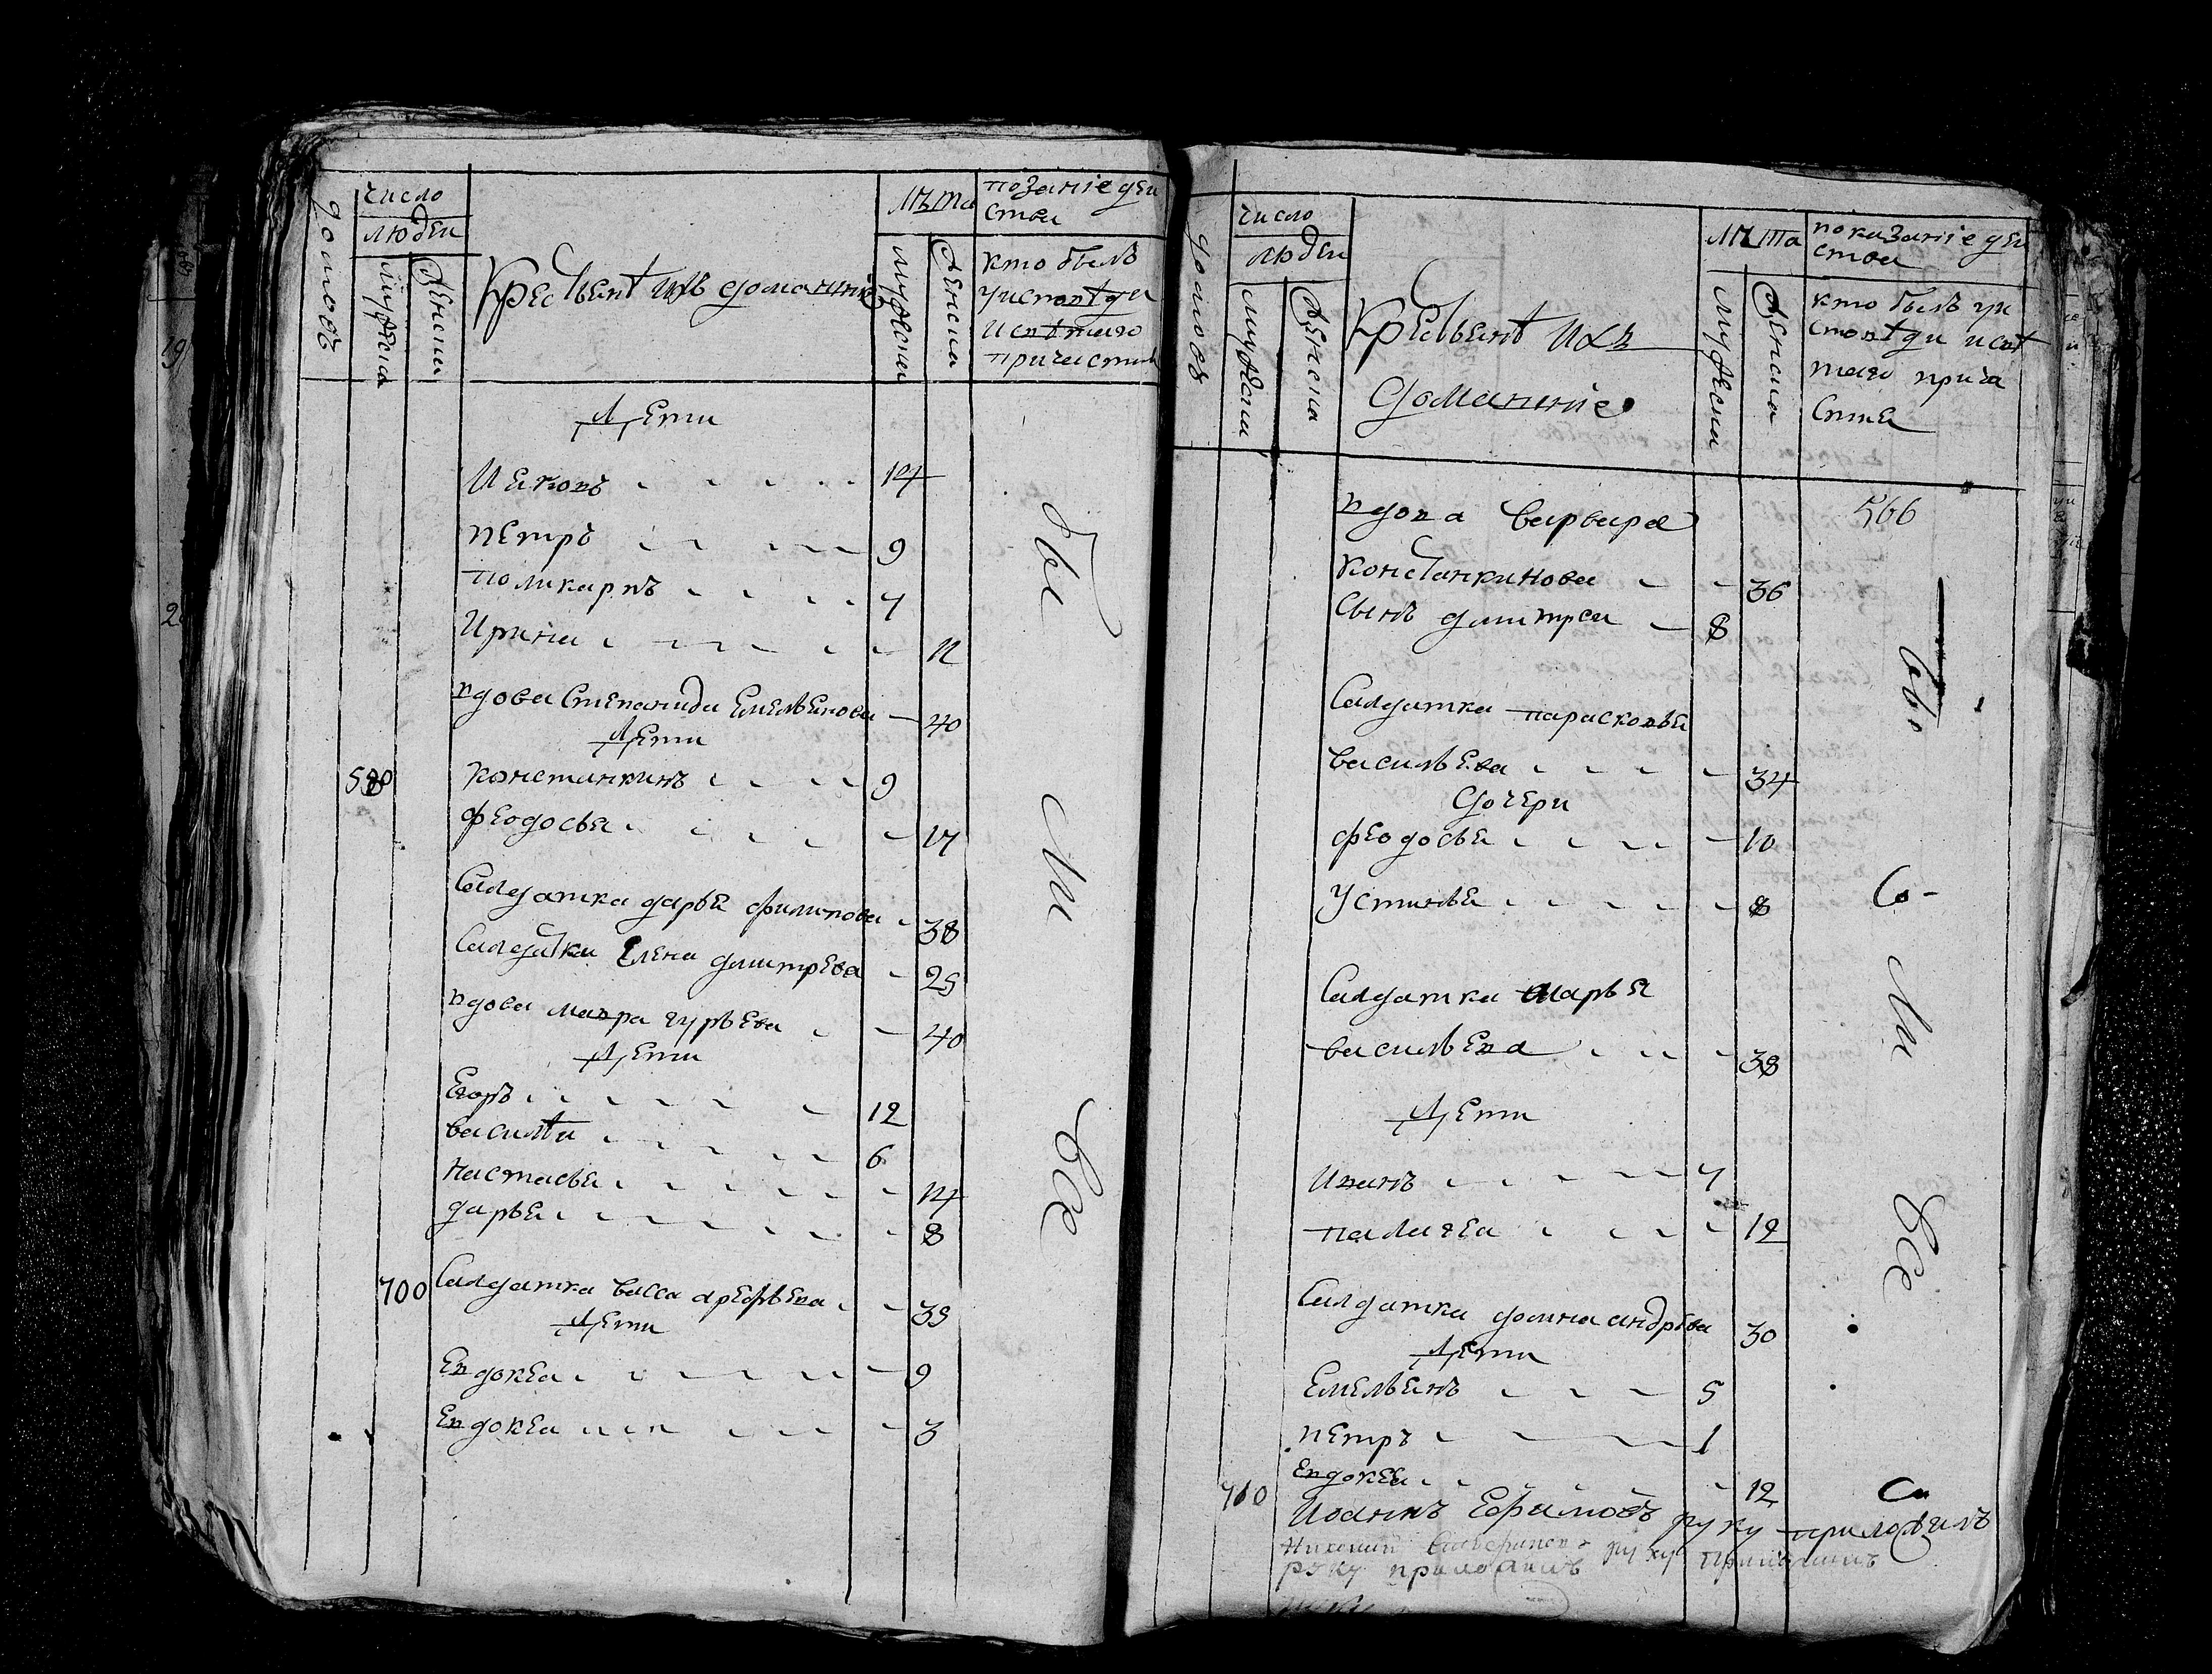 домовъ
число
людеи
мужеска
женска
Крестьянѣ ихъ домашние
лѣта
мужеска
женска
позание деи
стви
кто былъ
уисповѣди
исвѣтаго
причасти
Дети
Иаковъ 14
петръ 9
поликарпъ 7
Ирина 11
вдова Степанида Емельянова 40
Дети
константинъ 9
феодосья 17
Салдатка дарья филипова 38
Салдатка Елена дмитрева 25
вдова мавра гурьева 40
Дети
Егоръ 12
василѣи 6
настасья 14
дарья 8
700 Салдатка васса арефьева 35
Дети
Евдокеа 9
Евдокеа 3
бы
ли
все
домовъ
число
людеи
мужеска
женска
Крестьянѣ ихъ
домашние
лѣта
мужеска
женска
показание деи
стви
кто былъ уи
споѣди и свѣ
таго прича
стиа
566
вдова варвара
константинова 36
Сынъ дмитреи 8
Салдатка парасковья
васильева 34
дочери
феодосья 10
устинья 8
Салдатка марья
васильева 38
Дети
Иванъ 7
палагеа 12
Салдатка домна андрѣева 30
Дети
Емельянъ 5
петръ 1
710 Евдокеа 12
ли
все
Иоаннъ Ефимовъ руку приложилъ
руку приложилъ